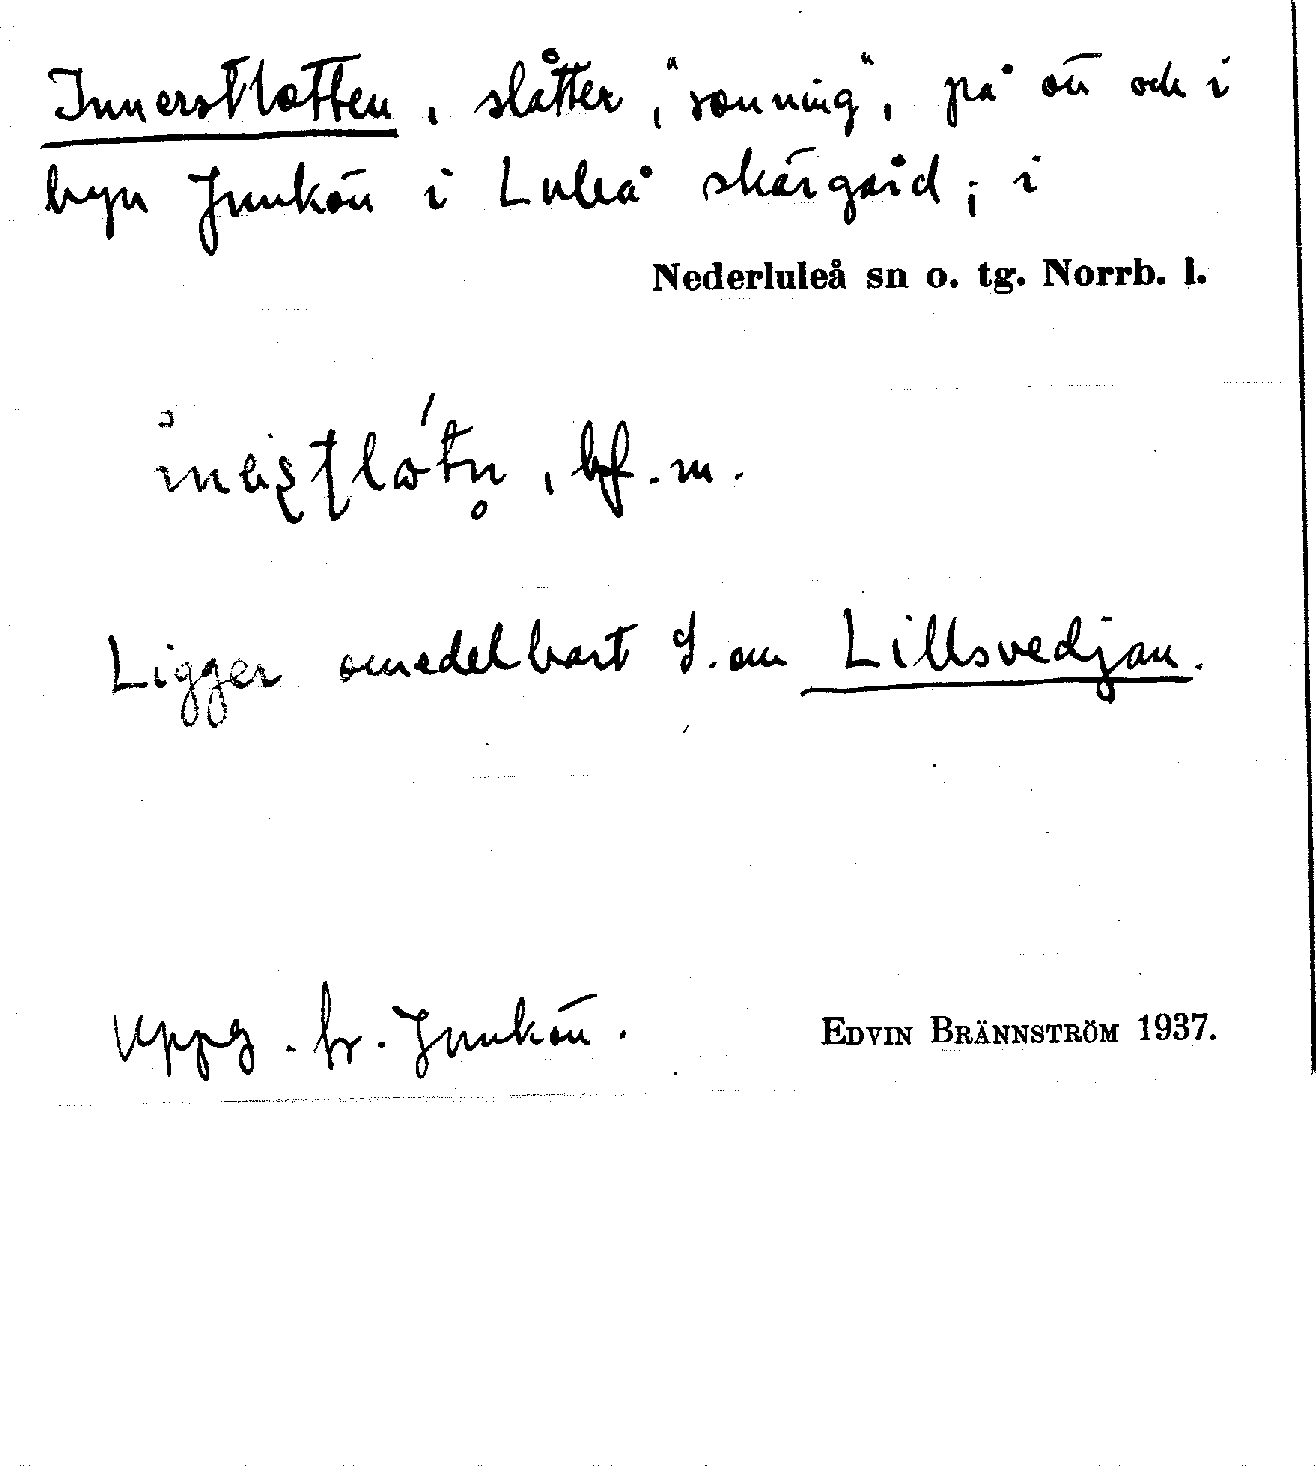 Innerstlotten, slåtter, "rönning", på ön och i
byn Junkön i Luleå skärgård; i
Nederluleå sn o. tg. Norrb. l.
bf. m.
Ligger omedelbart S. om Lillsvedjan.
Uppg. fr. Junkön.
EDVIN BRÄNNSTRÖM 1937.